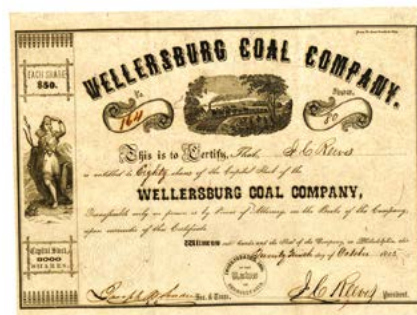 EACH SHARE
$50.
WELLERSBURG COAL COMPANY.
No.
164
Shares
80
This is to Certify, That J C Reeves
is entitled to Eighty shares of the Capital Stock of the
WELLERSBURG COAL COMPANY,
Transferable only in person or by Power of Attorney on the Books of the Company,
upon surrender of this Certificate
Witness and the Seal of the Company, at Philadelphia this
day of October
Capital Stock,
SHARES.
Sec. & Treas.
J C Reeves President.